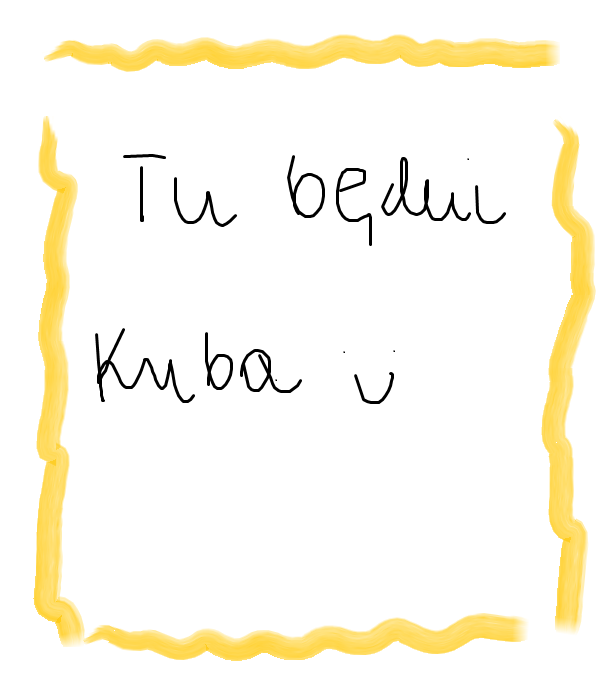 Tu będzie
Kuba :)